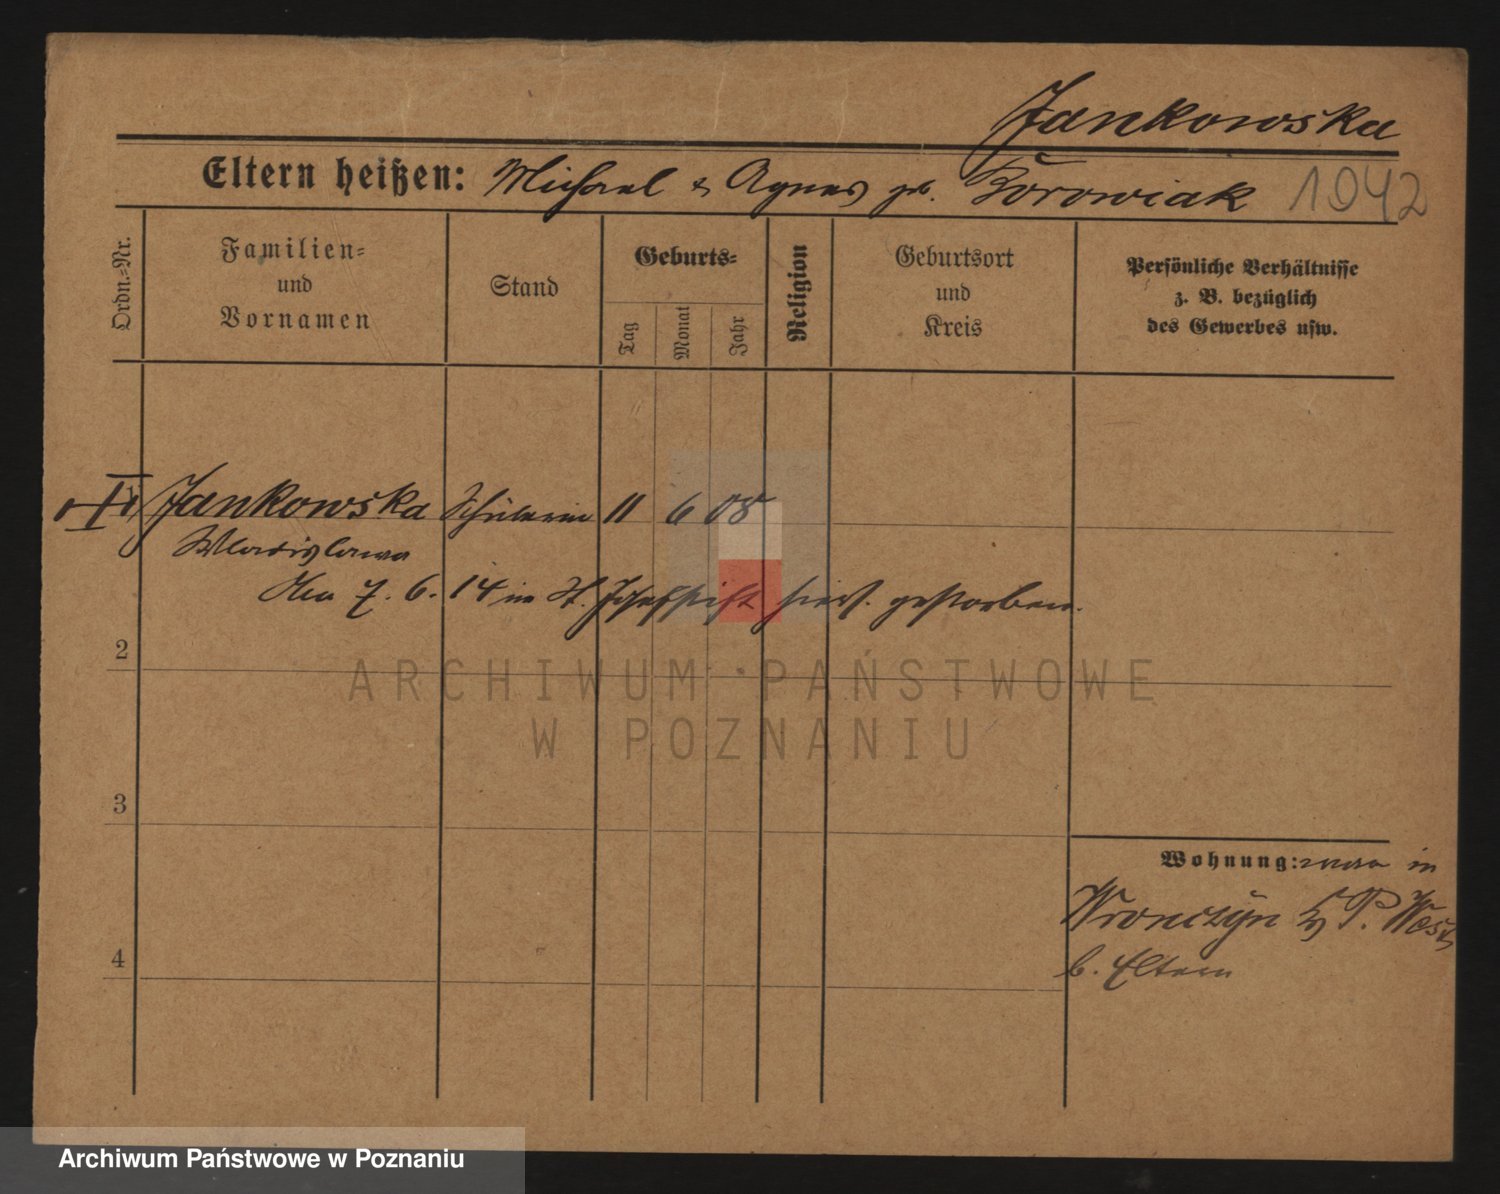 Jankowska
Eltern heißen: Michael & Agnes geb. Borowiak 1942
Ordn.-Nr.
Familien-
und
Vornamen
Stand
Geburts-
Tag
Monat
Jahr
Religion
Geburtsort
und
Kreis
Persönliche Verhältnisse
z. B. bezüglich
des Gewerbes usw.
Jankowska Schülerin 11 6 08
Wladislawa
7. 6. 14 im St. Josefstift hies. gestorben.
2
3
4
Wohnung: in
Wronczyn P.
b. Eltern
ARCHIWUM PAŃSTWOWE
W POZNANIU
Archiwum Państwowe w Poznaniu